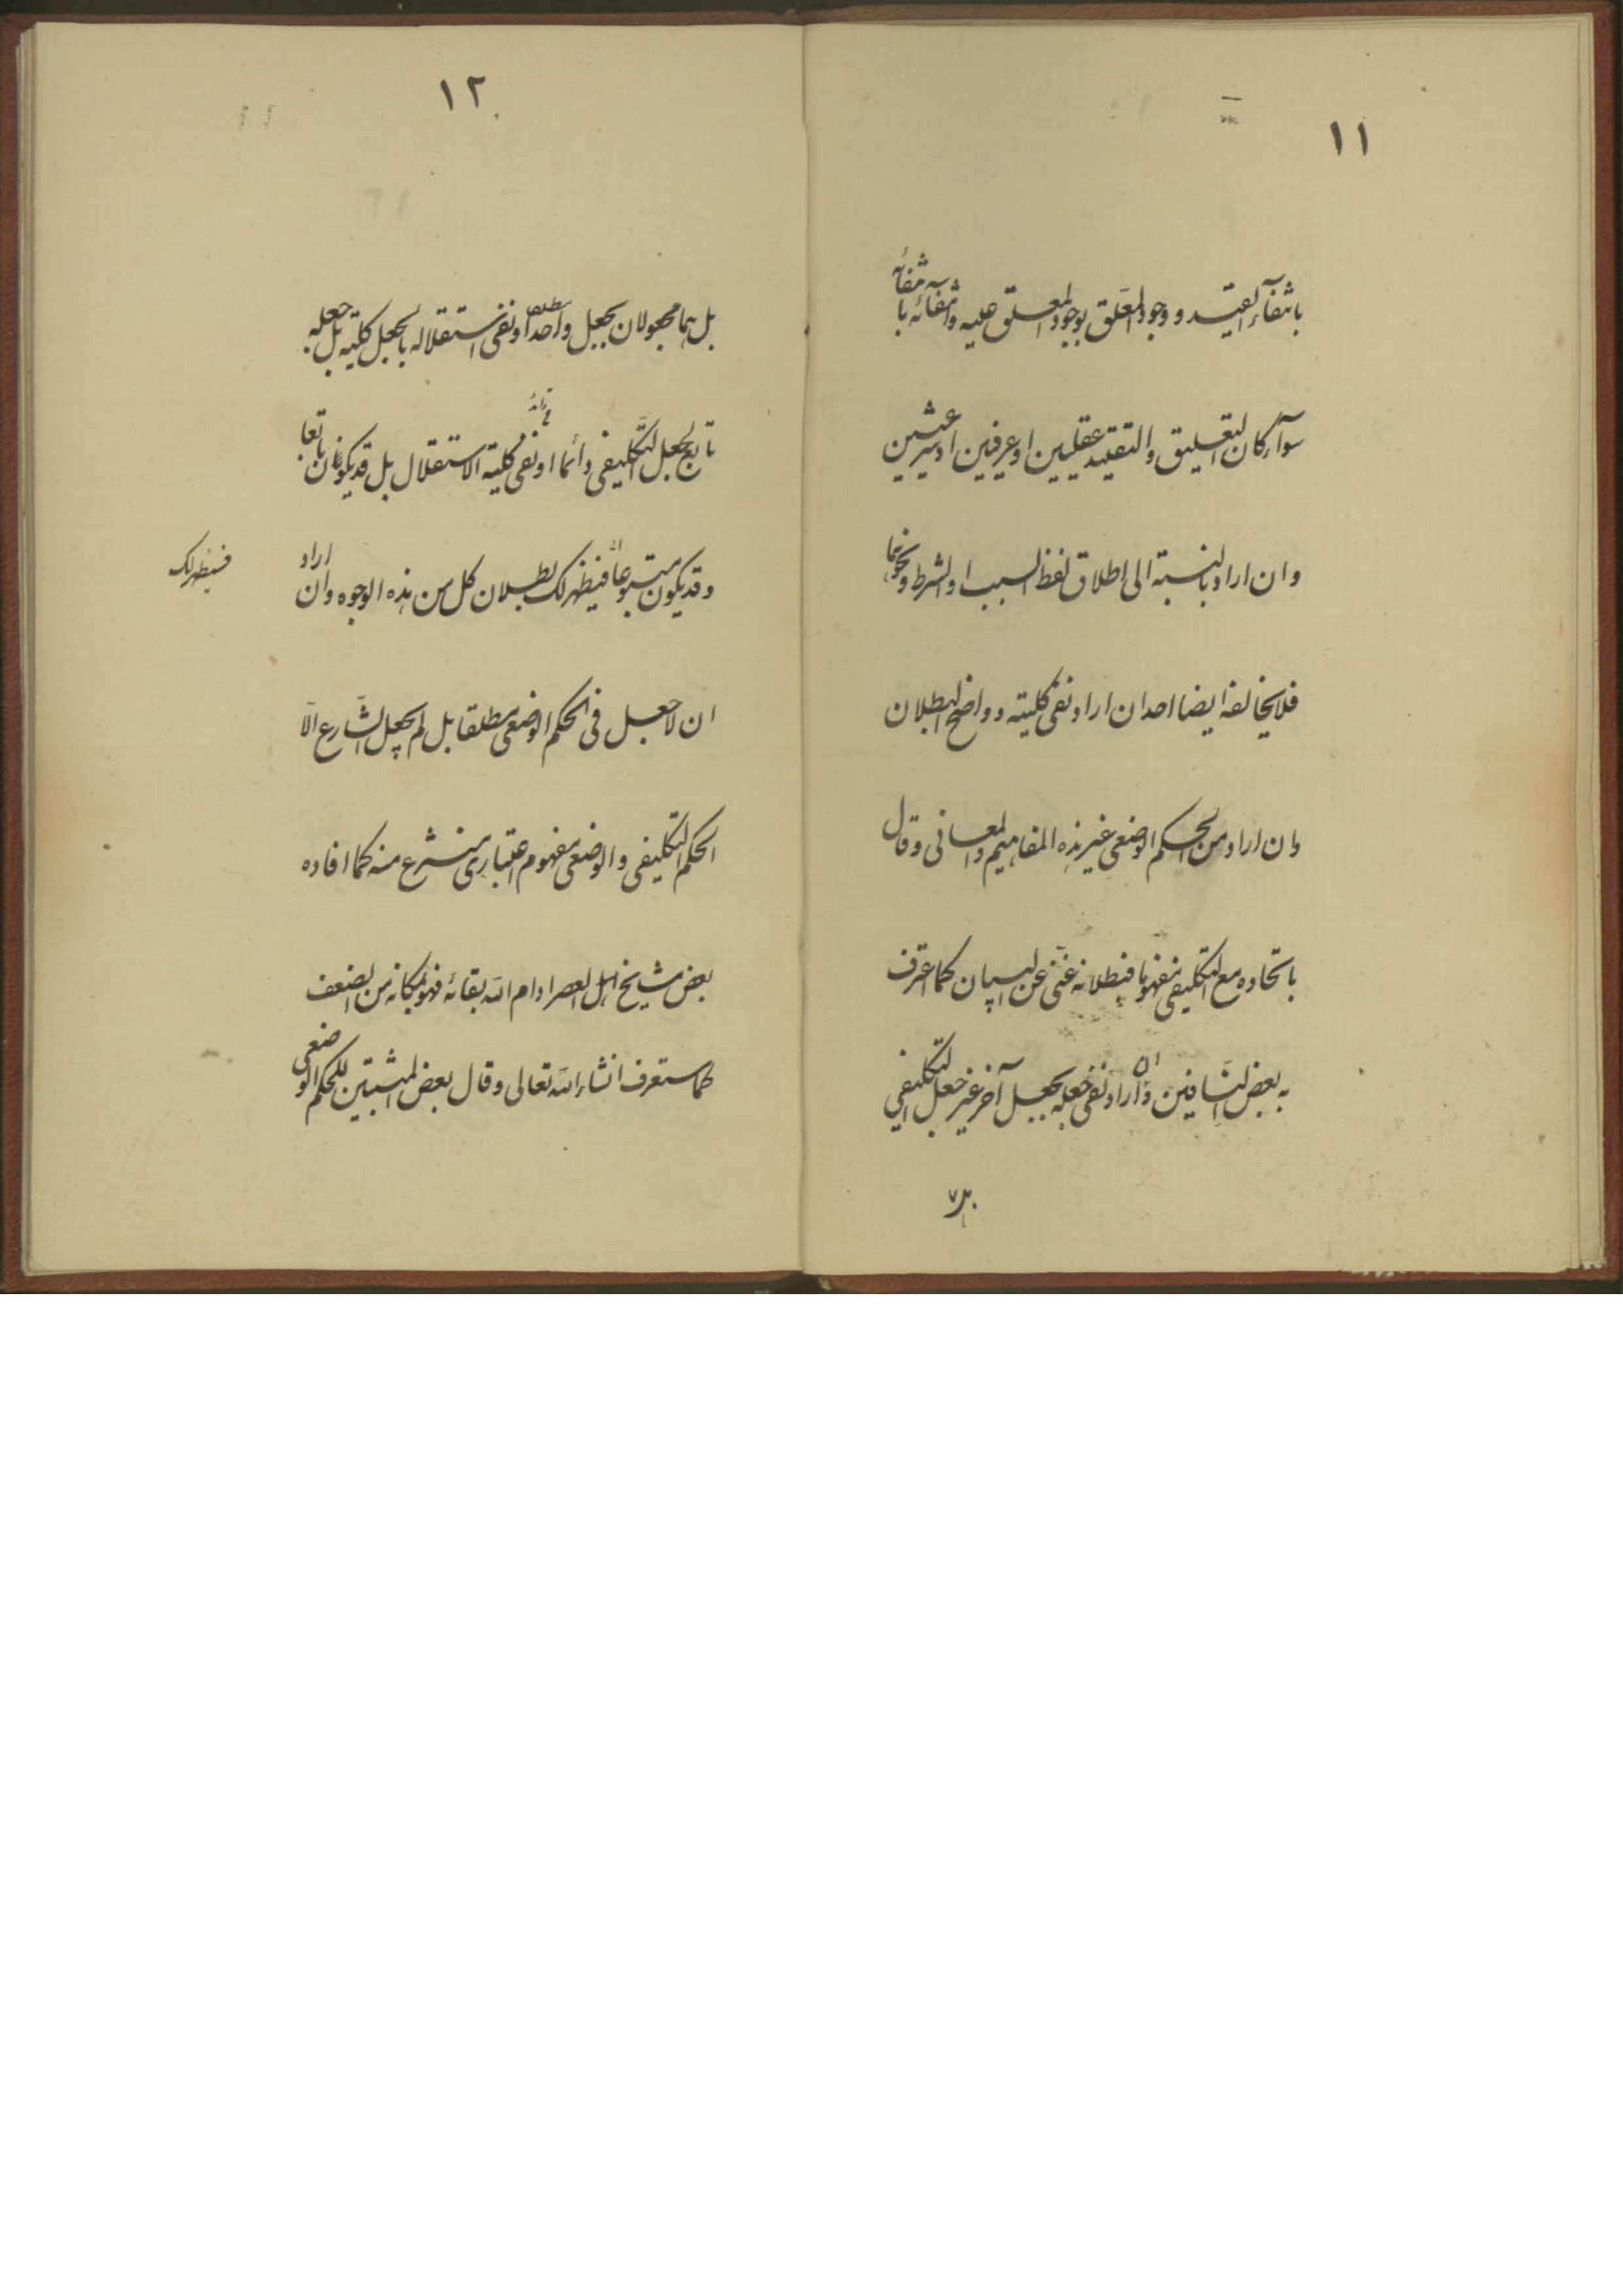 ١١
بانتفآء القيد و وجود المعلّق بوجود المعلق عليه وانتفائه بانتفائه
سوآء كان التعليق والتقييد عقليين او عرفيين او شرعيين
وان اراد بالنسبة الى اطلاق لفظ السبب او الشرط ونحوهما
فلا يخالفه ايضا احد ان اراد نفى كليته و واضح البطلان
وان اراد من الحكم الوضعى غير هذه المفاهيم والمعانى وقال
باتحاده مع التكليفى مفهوما فبطلانه غنّى عن البيان كما اعترف
به بعض النّافين وان اراد نفى جعله بجعل آخر غير جعل التكليفي
بل
١٢
بل هما مجعولان بجعل واحد او نفى استقلاله بالجعل كلية بل جعله
تابع لجعل التّكليفى دائما او نفى كلية الاستقلال بل قد يكون تابعا
وقد يكون متبوعاً فيظهر لك بطلان كل من هذه الوجوه وان اراد
فسيظهر لك
ان لا جعل فى الحكم الوضعى مطلقا بل لم يجعل الشّارع الّا
الحكم التكليفى والوضعى مفهوم اعتبارى منتزع منه كما افاده
بعض مشايخ اهل العصر ادام الله بقائه فهو بمكانه من الضعف
كما ستعرف انشاء الله تعالى وقال بعض المثبتين للحكم الوضعى